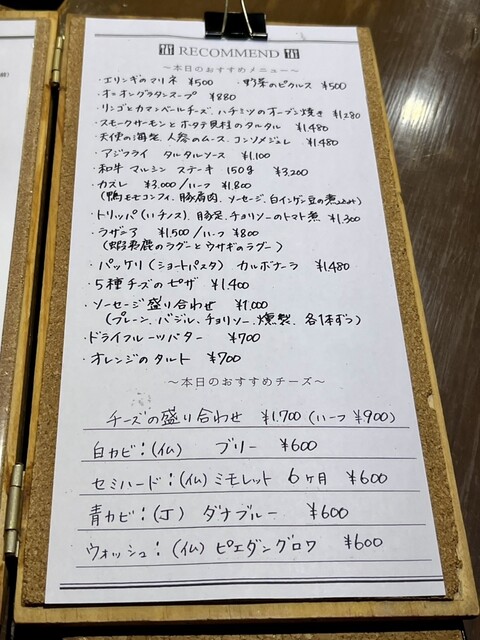 RECOMMEND
～本日のおすすめメニュー～
・エリンギのマリネ ¥500 ・野菜のピクルス ¥500
・オニオングラタンスープ ¥880
・リンゴとカマンベールチーズ、ハチミツのオーブン焼き ¥1,280
・スモークサーモンとホタテ貝柱のタルタル ¥1,480
・天使の海老、人参のムース、コンソメジュレ ¥1,480
・アジフライ タルタルソース ¥1,100
・和牛 マルシン ステーキ 150g ¥3,200
・カスレ ¥3,000/ハーフ ¥1,800
(鴨モモコンフィ、豚肩肉、ソーセージ、白インゲン豆の煮込み)
・トリッパ(ハチノス)、豚足、チョリソーのトマト煮 ¥1,300
・ラザニア ¥1,500/ハーフ ¥800
(蝦夷鹿のラグーとウサギのラグー)
・パッケリ(ショートパスタ) カルボナーラ ¥1,480
・5種チーズのピザ ¥1,400
・ソーセージ盛り合わせ ¥1,000
(プレーン、バジル、チョリソー、燻製、各1本ずつ)
・ドライフルーツバター ¥700
・オレンジのタルト ¥700
～本日のおすすめチーズ～
チーズの盛り合わせ ¥1,700(ハーフ ¥900)
白カビ:(仏) ブリー ¥600
セミハード:(仏)ミモレット 6ヶ月 ¥600
青カビ:(丁) ダナブルー ¥600
ウォッシュ:(仏)ピエダングロワ ¥600